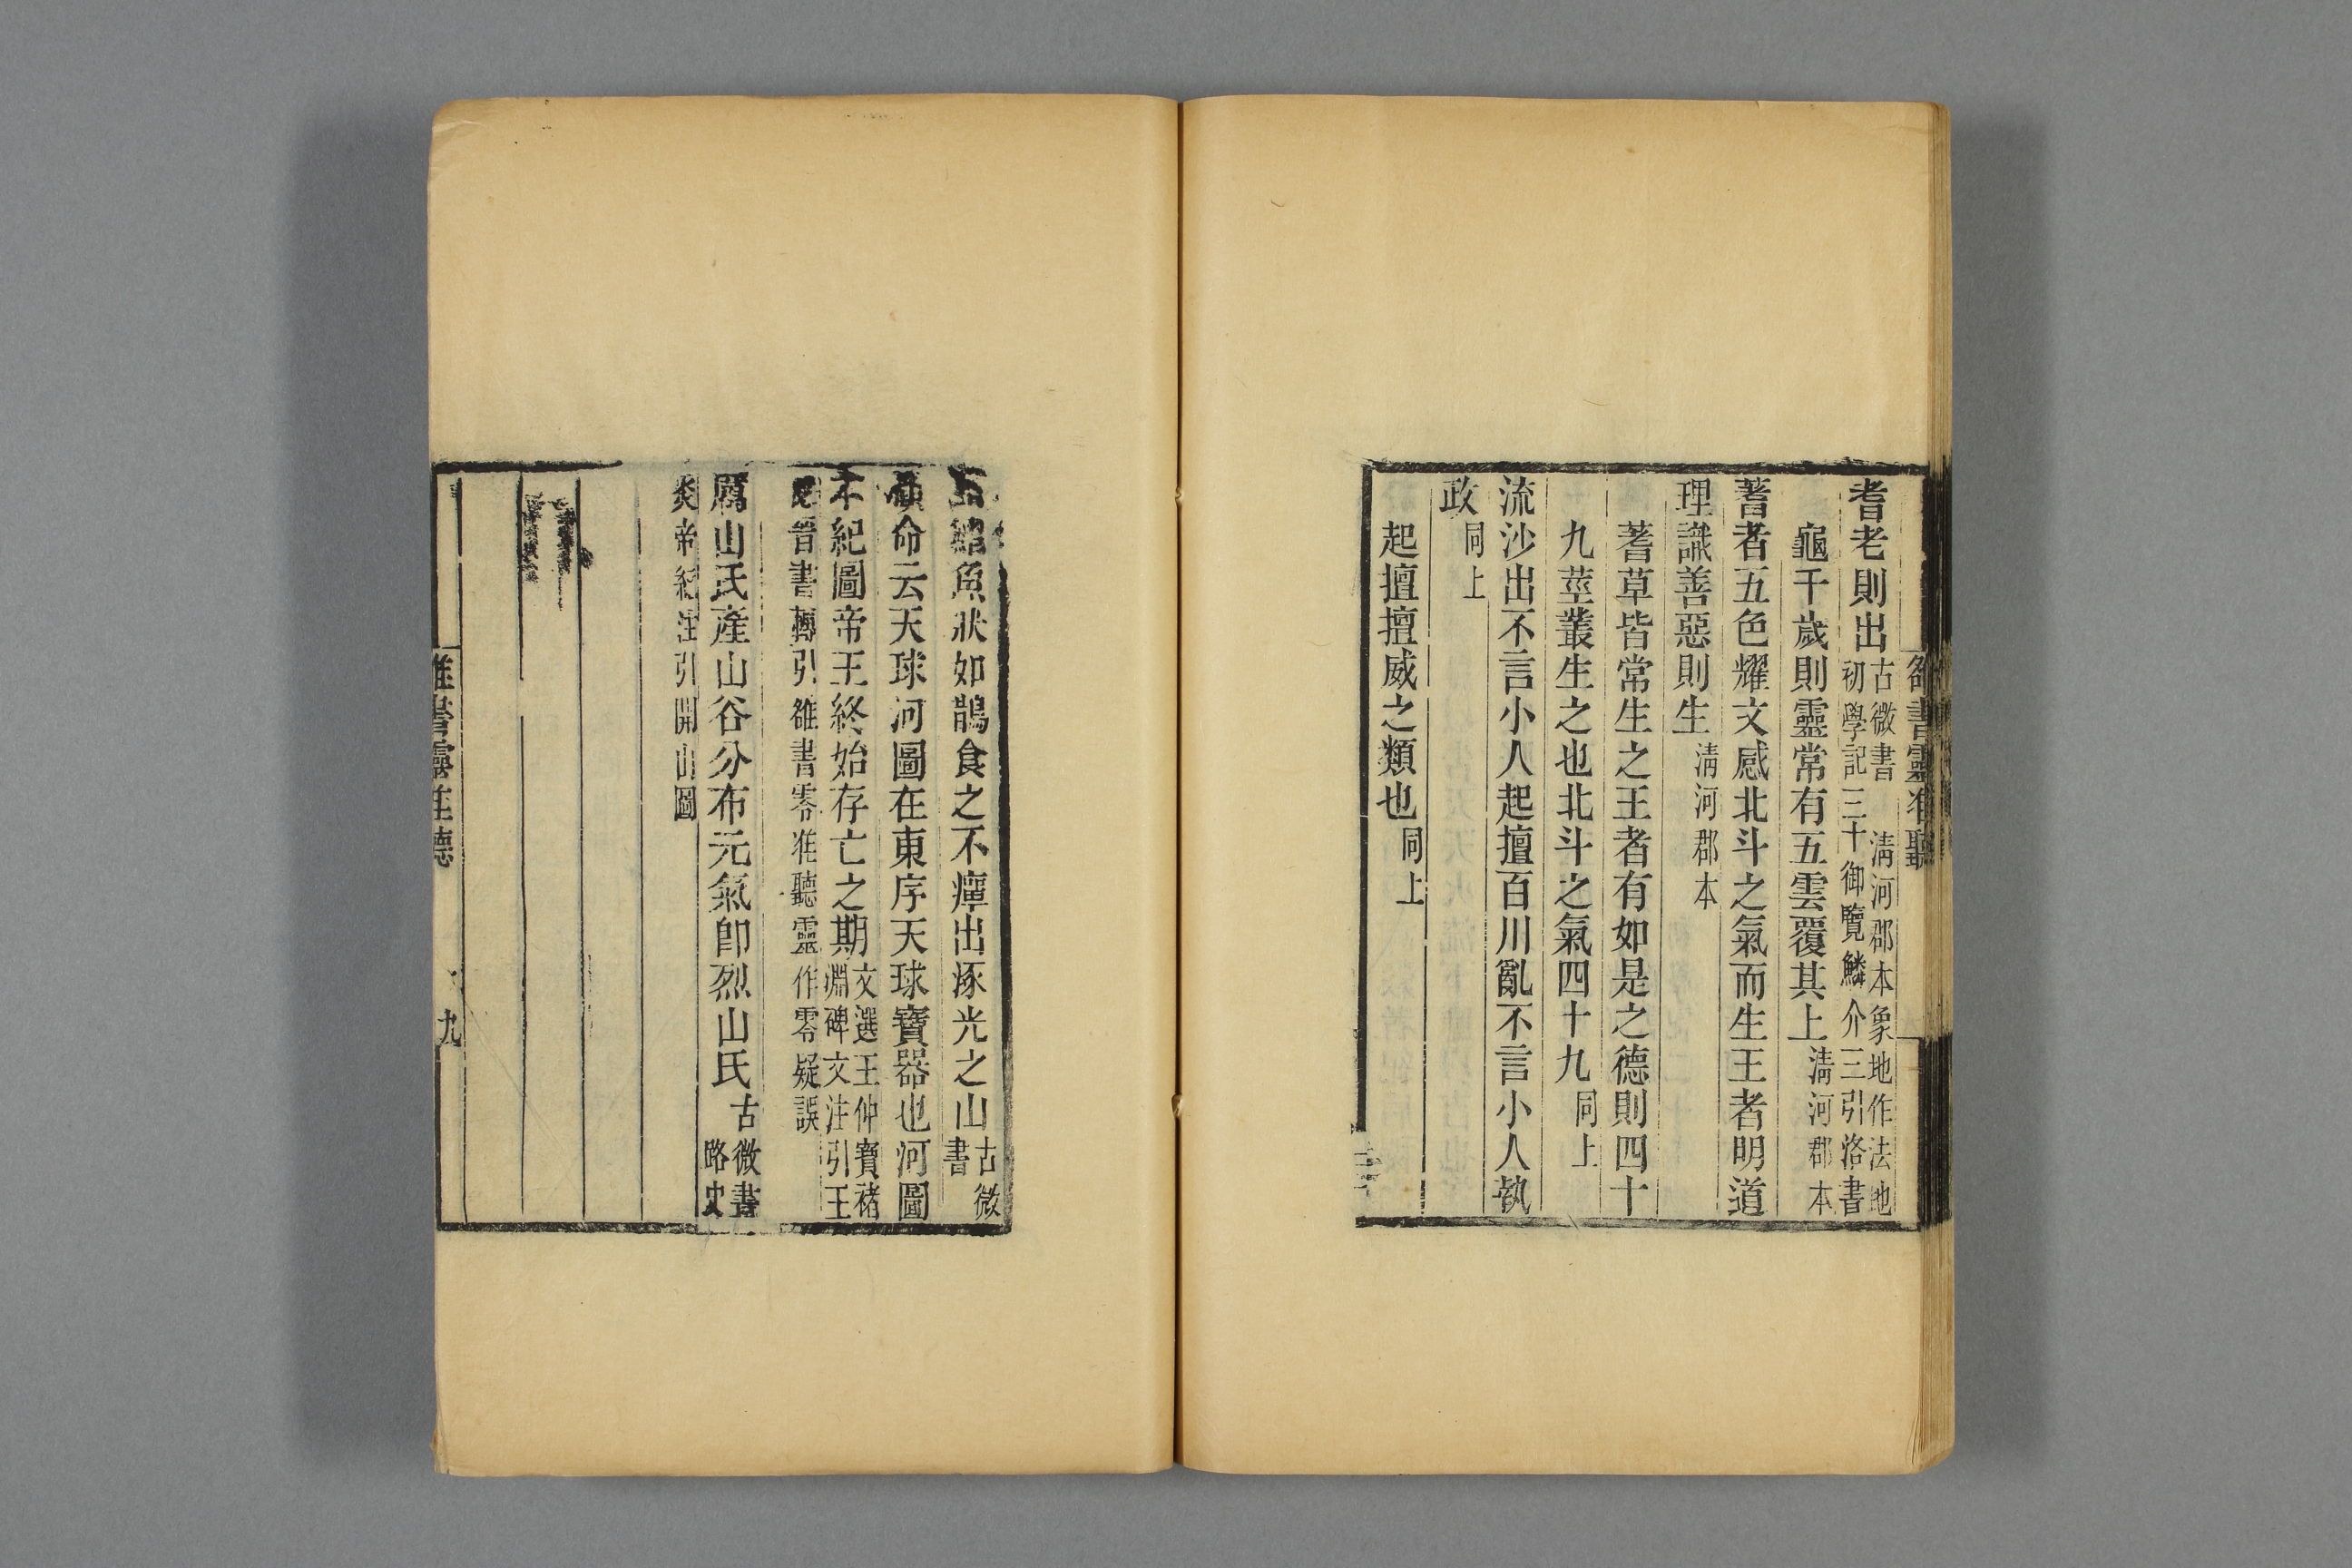 雒書靈准聽
耆老則出古微書　清河郡本象地作法地
初學記三十御覽鱗介三引洛書
龜千歲則靈常有五雲覆其上清河郡本
蓍者五色耀文感北斗之氣而生王者明道
理識善惡則生清河郡本
蓍草皆常生之王者有如是之德則四十
九莖叢生之也北斗之氣四十九同上
流沙出不言小人起擅百川亂不言小人執
政同上
起擅擅威之類也同上
魚狀如鵲食之不癉出涿光之山古微
書
顧命云天球河圖在東序天球寶器也河圖
本紀圖帝王終始存亡之期文選王仲寶褚
淵碑文注引王
晉書轉引雒書零准聽靈作零疑誤
厲山氏產山谷分布元氣卽烈山氏古微書
路史
炎帝紀注引開山圖
雒書靈准聽
九